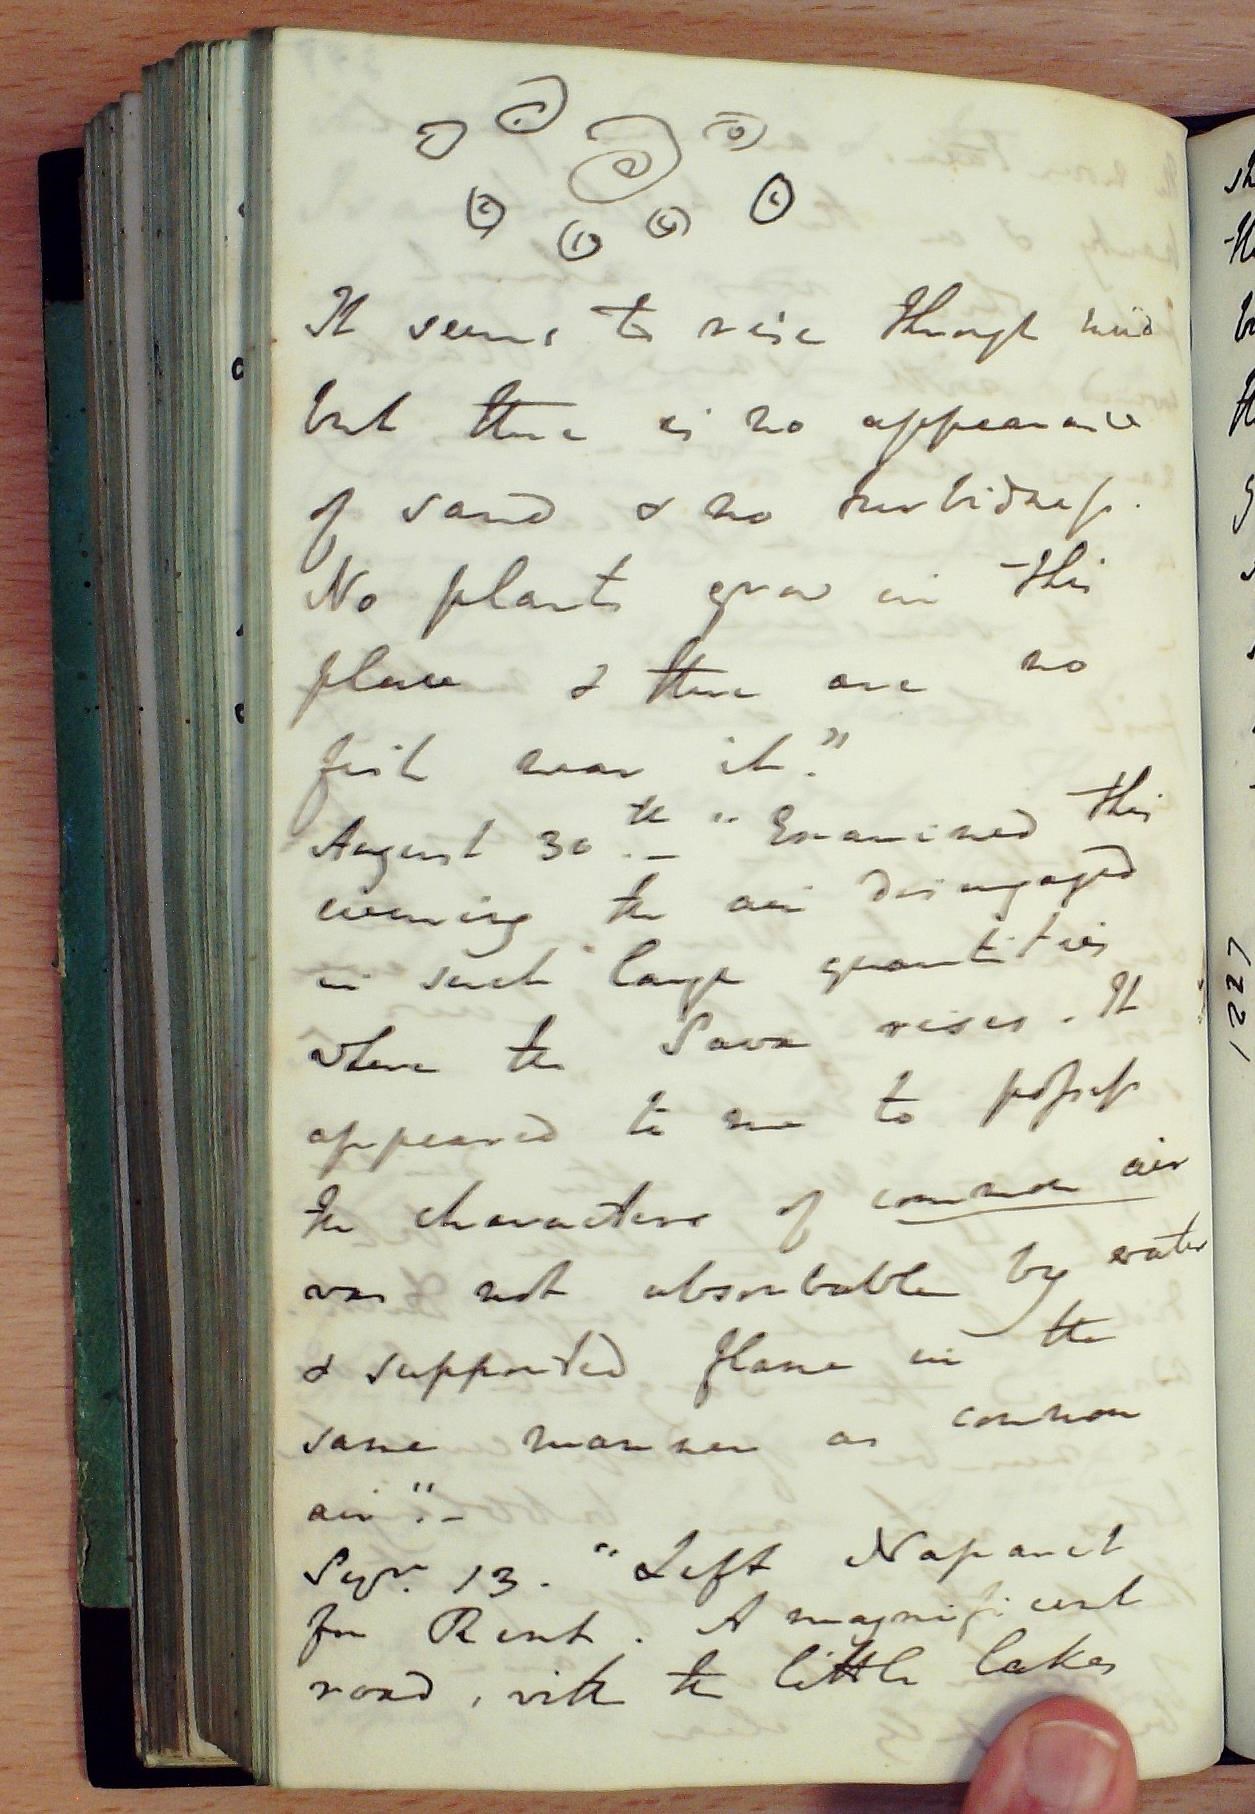 It seems to rise through mud
but there is no appearance
of sand & no turbidness.
No plants grow in this
place & there are no
fish near it."
August 30.th "Examined this
evening the air disengaged
in such large quantities
where the Sava rises. It
appeared to me to possess
the characters of common air
was not absorbable by water
& supported flame in the
same manner as common
air".-
Sepr. 13. "Left
for . A magnificent
road, with the little lakes
1227